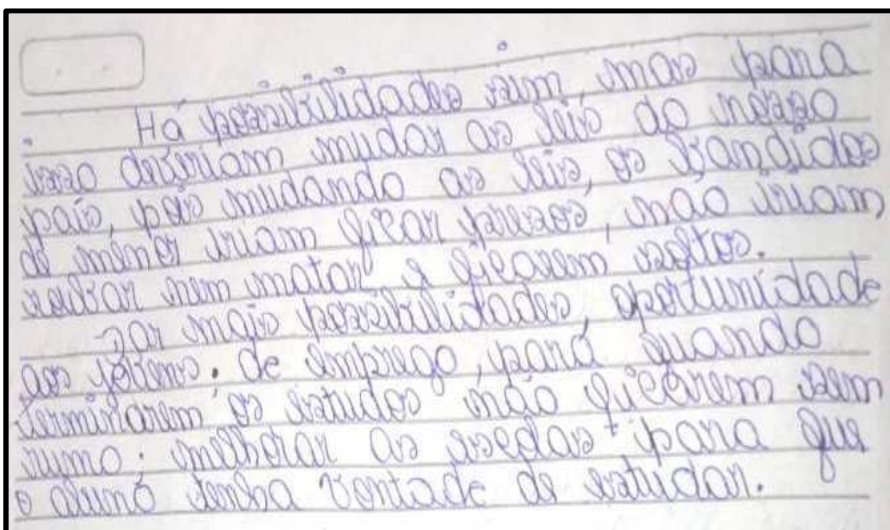 Há possibilidades sim, mas para
isso deveriam mudar as leis do nosso
país, pois mudando as leis, os bandidos
de menor iriam ficar presos, não iriam
roubar nem matar e ficarem soltos.
Dar mais possibilidades, oportunidade
aos jovens. de emprego, para quando
terminarem os estudos não ficarem sem
rumo; melhorar as escolas para que
o aluno tenha vontade de estudar.